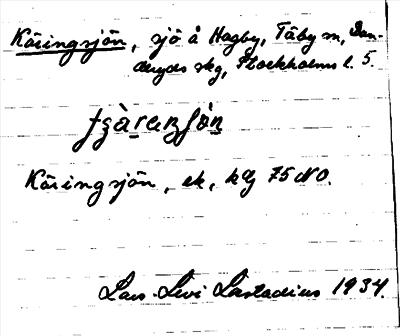 Käringsjön, sjö å Hagby, Täby sn, Dan-
deryds skg, Stockholms l. 5.
Käringsjön, ek, kbl 75 NO.
Lars-Levi Læstadius 1934.